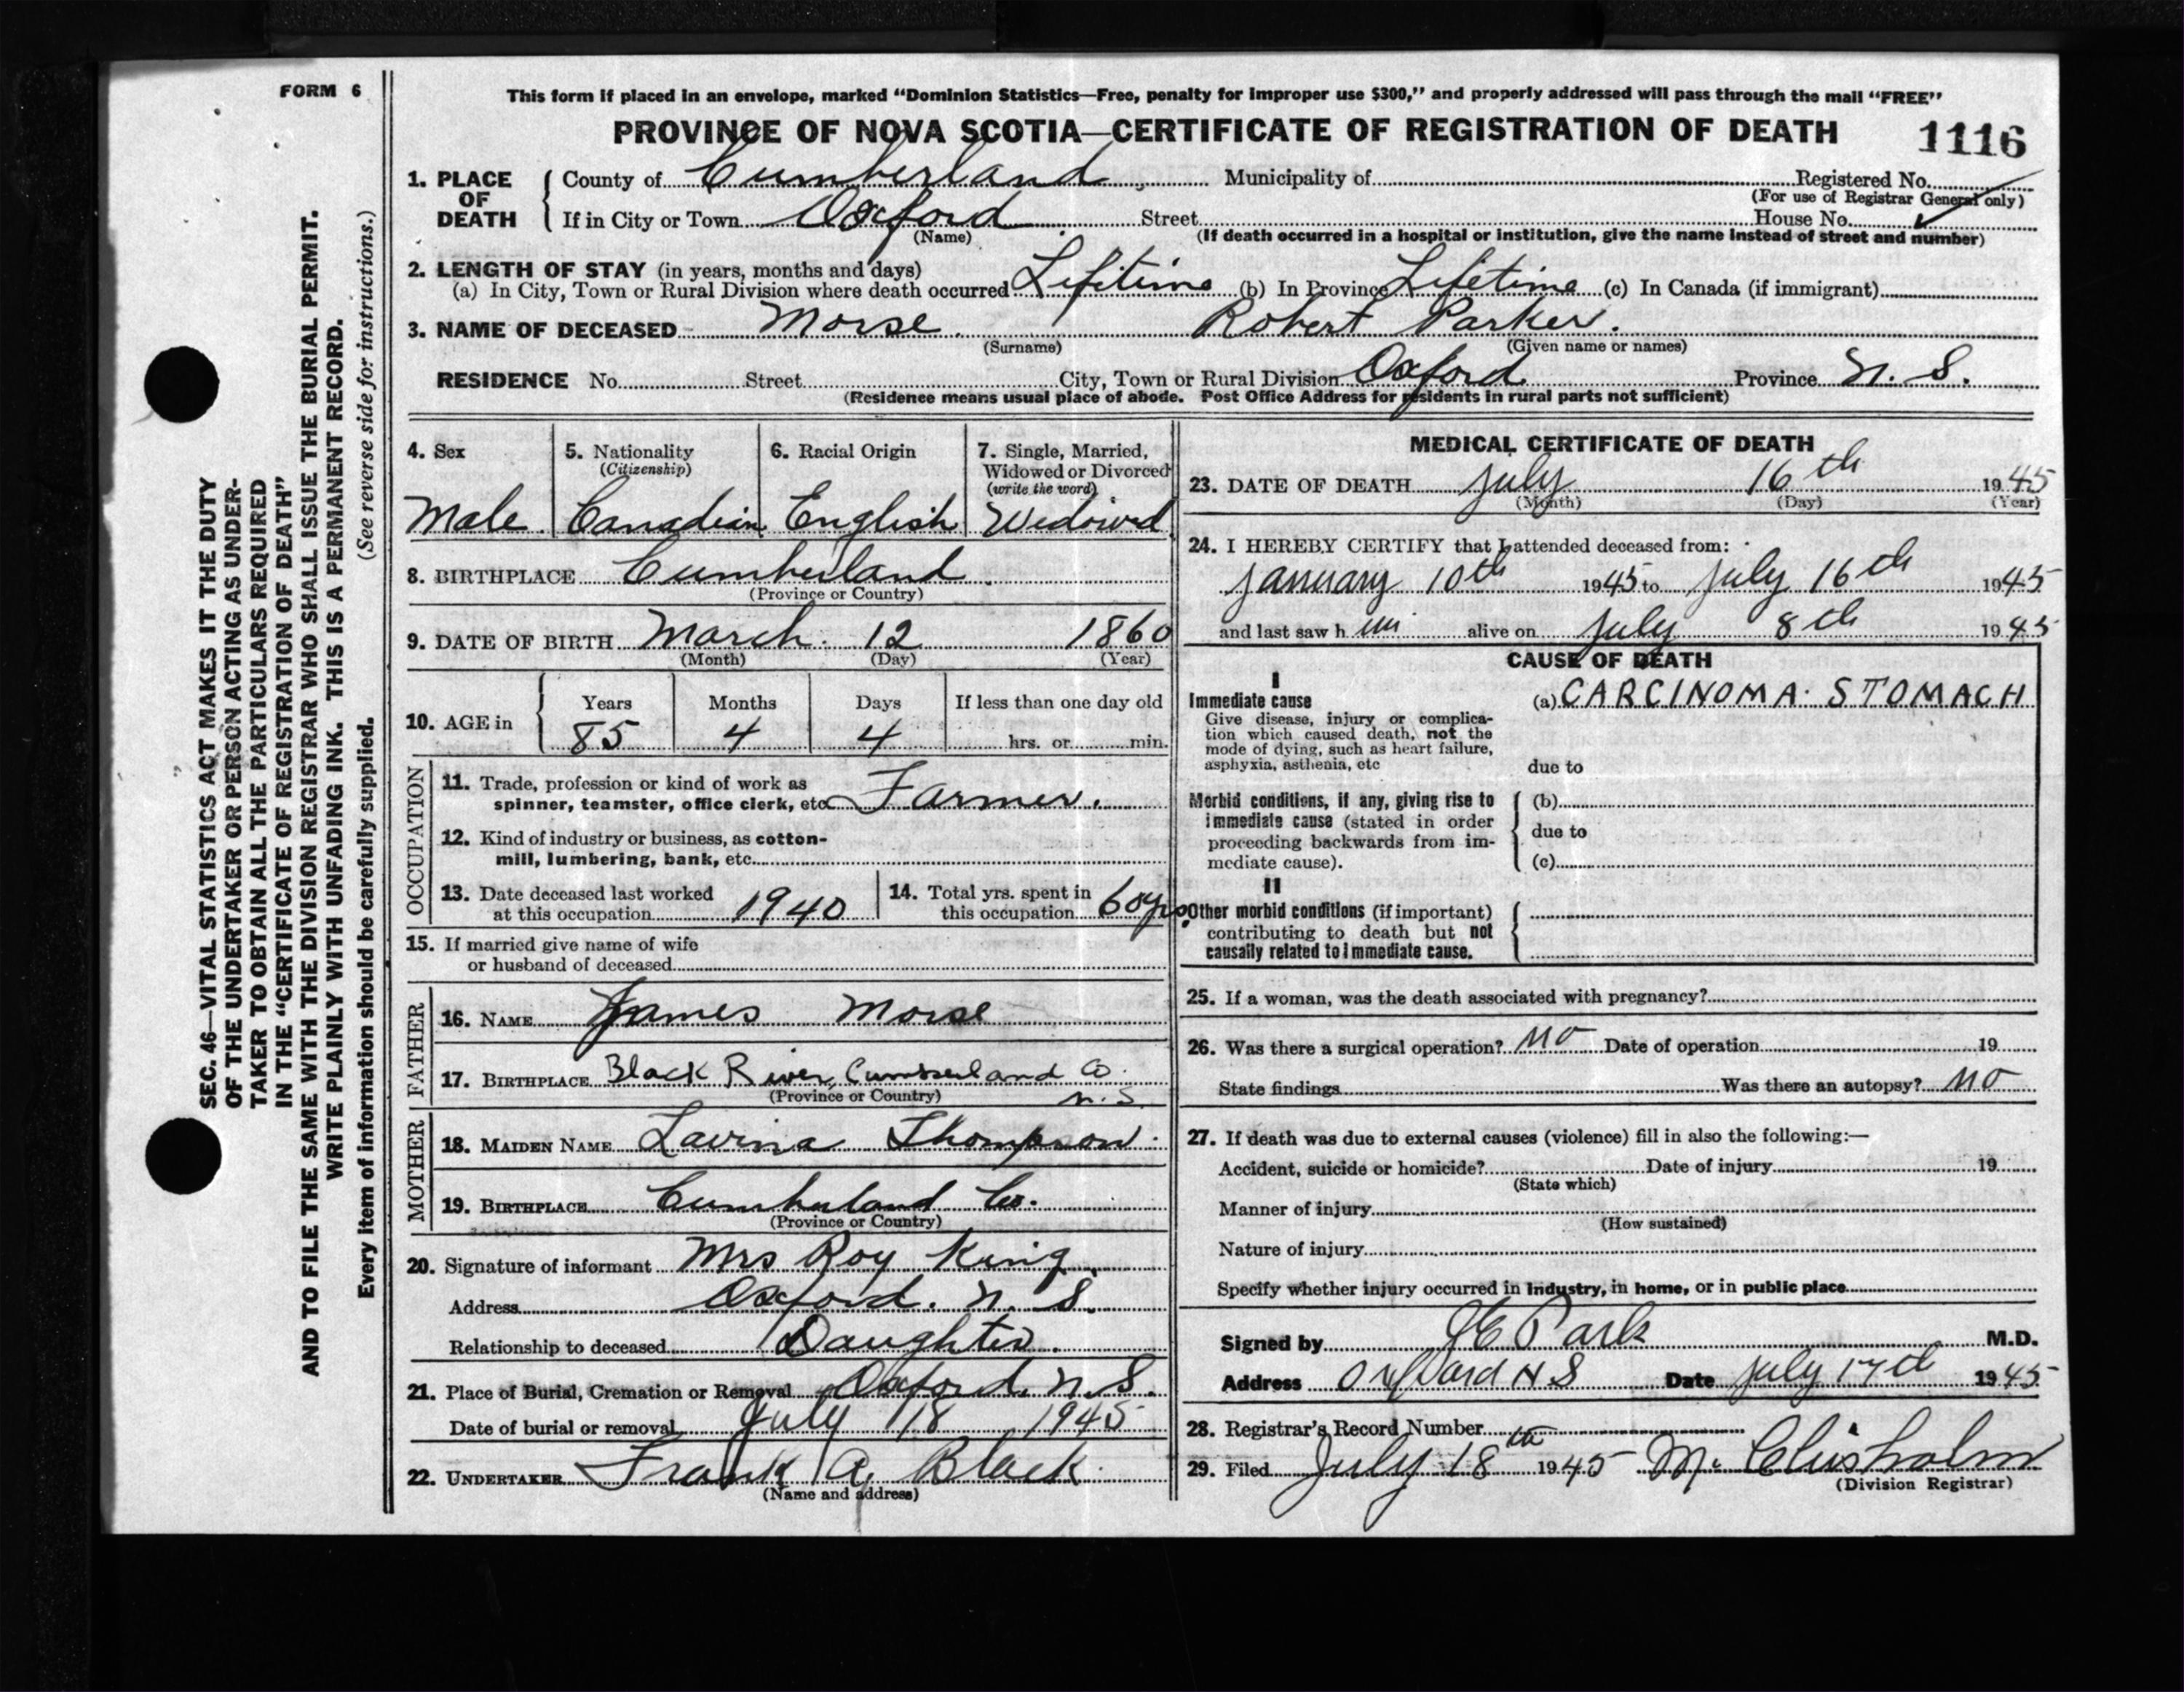 FORM 6
SEC. 46—VITAL STATISTICS ACT MAKES IT THE DUTY
OF THE UNDERTAKER OR PERSON ACTING AS UNDER-
TAKER TO OBTAIN ALL THE PARTICULARS REQUIRED
IN THE "CERTIFICATE OF REGISTRATION OF DEATH"
AND TO FILE THE SAME WITH THE DIVISION REGISTRAR WHO SHALL ISSUE THE BURIAL PERMIT.
WRITE PLAINLY WITH UNFADING INK. THIS IS A PERMANENT RECORD.
Every item of information should be carefully supplied. (See reverse side for instructions.)
This form if placed in an envelope, marked "Dominion Statistics—Free, penalty for improper use $300," and properly addressed will pass through the mail "FREE"
PROVINCE OF NOVA SCOTIA—CERTIFICATE OF REGISTRATION OF DEATH 1116
1. PLACE OF DEATH County of Cumberland Municipality of Registered No.
(For use of Registrar General only)
If in City or Town Oxford Street House No.
(Name) (If death occurred in a hospital or institution, give the name instead of street and number)
2. LENGTH OF STAY (in years, months and days)
(a) In City, Town or Rural Division where death occurred Lifetime (b) In Province Lifetime (c) In Canada (if immigrant)
3. NAME OF DECEASED Morse Robert Parker.
(Surname) (Given name or names)
RESIDENCE No. Street City, Town or Rural Division Oxford Province N. S.
(Residence means usual place of abode. Post Office Address for residents in rural parts not sufficient)
4. Sex 5. Nationality (Citizenship) 6. Racial Origin 7. Single, Married, Widowed or Divorced (write the word)
Male Canadian English Widowed
8. BIRTHPLACE Cumberland
(Province or Country)
9. DATE OF BIRTH March 12 1860
(Month) (Day) (Year)
10. AGE in Years Months Days If less than one day old
85 4 4 hrs. or min.
OCCUPATION
11. Trade, profession or kind of work as
spinner, teamster, office clerk, etc Farmer.
12. Kind of industry or business, as cotton-
mill, lumbering, bank, etc.
13. Date deceased last worked
at this occupation 1940
14. Total yrs. spent in
this occupation 60 yrs.
15. If married give name of wife
or husband of deceased
FATHER
16. NAME James Morse
17. BIRTHPLACE Black River, Cumberland Co.
(Province or Country) N. S.
MOTHER
18. MAIDEN NAME Lavina Thompson
19. BIRTHPLACE Cumberland Co.
(Province or Country)
20. Signature of informant Mrs Roy King
Address Oxford. N. S.
Relationship to deceased Daughter.
21. Place of Burial, Cremation or Removal Oxford, N. S.
Date of burial or removal July 18 1945
22. UNDERTAKER Frank A. Black
(Name and address)
MEDICAL CERTIFICATE OF DEATH
23. DATE OF DEATH July 16th 1945
(Month) (Day) (Year)
24. I HEREBY CERTIFY that I attended deceased from:
January 10th 1945 to July 16th 1945
and last saw h im alive on July 8th 1945
CAUSE OF DEATH
I
Immediate cause (a) CARCINOMA. STOMACH
Give disease, injury or complica-
tion which caused death, not the
mode of dying, such as heart failure,
asphyxia, asthenia, etc due to
Morbid conditions, if any, giving rise to (b)
immediate cause (stated in order
proceeding backwards from im- due to
mediate cause). (c)
II
Other morbid conditions (if important)
contributing to death but not
causally related to immediate cause.
25. If a woman, was the death associated with pregnancy?
26. Was there a surgical operation? no Date of operation 19
State findings Was there an autopsy? no
27. If death was due to external causes (violence) fill in also the following:—
Accident, suicide or homicide? Date of injury 19
(State which)
Manner of injury
(How sustained)
Nature of injury
Specify whether injury occurred in industry, in home, or in public place
Signed by J E Park M.D.
Address Oxford N S Date July 17th 1945
28. Registrar's Record Number
29. Filed July 18th 1945 M. Chisholm
(Division Registrar)